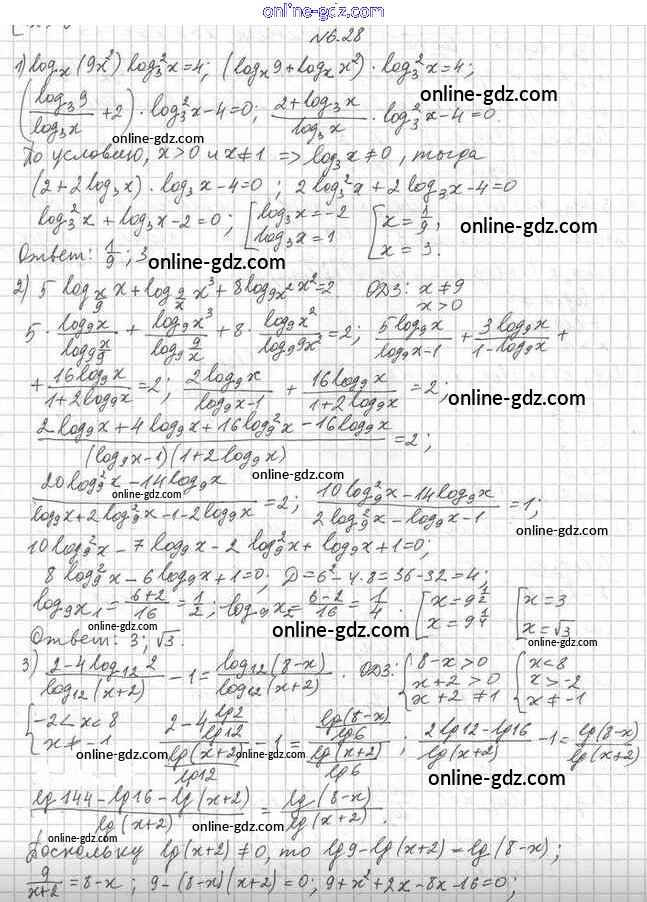 online-gdz.com
№6.28
1) log_x (9x²) log₃²x=4; (log_x 9+log_x x²)·log₃²x=4;
online-gdz.com
(log₃9/log₃x +2)·log₃²x-4=0; (2+log₃x)/log₃x · log₃²x-4=0.
online-gdz.com
По условию, x>0 и x≠1 => log₃x≠0, тогда
(2+2log₃x)·log₃x-4=0; 2log₃²x+2log₃x-4=0
log₃²x+log₃x-2=0; [log₃x=-2 log₃x=1 [x=1/9, x=3.
online-gdz.com
Ответ: 1/9; 3
online-gdz.com
2) 5 log_{x/9} x+log_{9/x} x³+8log_{9x²} x²=2 ОДЗ: x≠9 x>0
5·log₉x/log₉(x/9) + log₉x³/log₉(9/x) + 8·log₉x²/log₉9x²=2; 5log₉x/(log₉x-1) + 3log₉x/(1-log₉x) +
+ 16log₉x/(1+2log₉x)=2; 2log₉x/(log₉x-1) + 16log₉x/(1+2log₉x) = 2;
online-gdz.com
(2log₉x+4log₉x+16log₉²x-16log₉x)/((log₉x-1)(1+2log₉x))=2;
online-gdz.com
(20log₉²x-14log₉x)/(log₉x+2log₉²x-1-2log₉x)=2; (10log₉²x-14log₉x)/(2log₉²x-log₉x-1)=1;
online-gdz.com
online-gdz.com
10log₉²x-7log₉x-2log₉²x+log₉x+1=0;
8log₉²x-6log₉x+1=0; D=6²-4·8=36-32=4;
log₉x₁=(6+2)/16=1/2; log₉x₂=(6-2)/16=1/4. [x=9^{1/2} x=9^{1/4} [x=3 x=√3
online-gdz.com
online-gdz.com
Ответ: 3; √3.
3) (2-4log₁₂2)/log₁₂(x+2) -1=log₁₂(8-x)/log₁₂(x+2). ОДЗ: {8-x>0 x+2>0 x+2≠1 {x<8 x>-2 x≠-1
{-2<x<8 x≠-1 (2-4 lg2/lg12)/(lg(x+2)/lg12) -1= (lg(8-x)/lg6)/(lg(x+2)/lg6); (2lg12-lg16)/lg(x+2) -1=lg(8-x)/lg(x+2)
online-gdz.com
online-gdz.com
(lg144-lg16-lg(x+2))/lg(x+2) = lg(8-x)/lg(x+2).
online-gdz.com
online-gdz.com
Поскольку lg(x+2)≠0, то lg9-lg(x+2)=lg(8-x);
9/(x+2)=8-x; 9-(8-x)(x+2)=0; 9+x²+2x-8x-16=0;
online-gdz.com